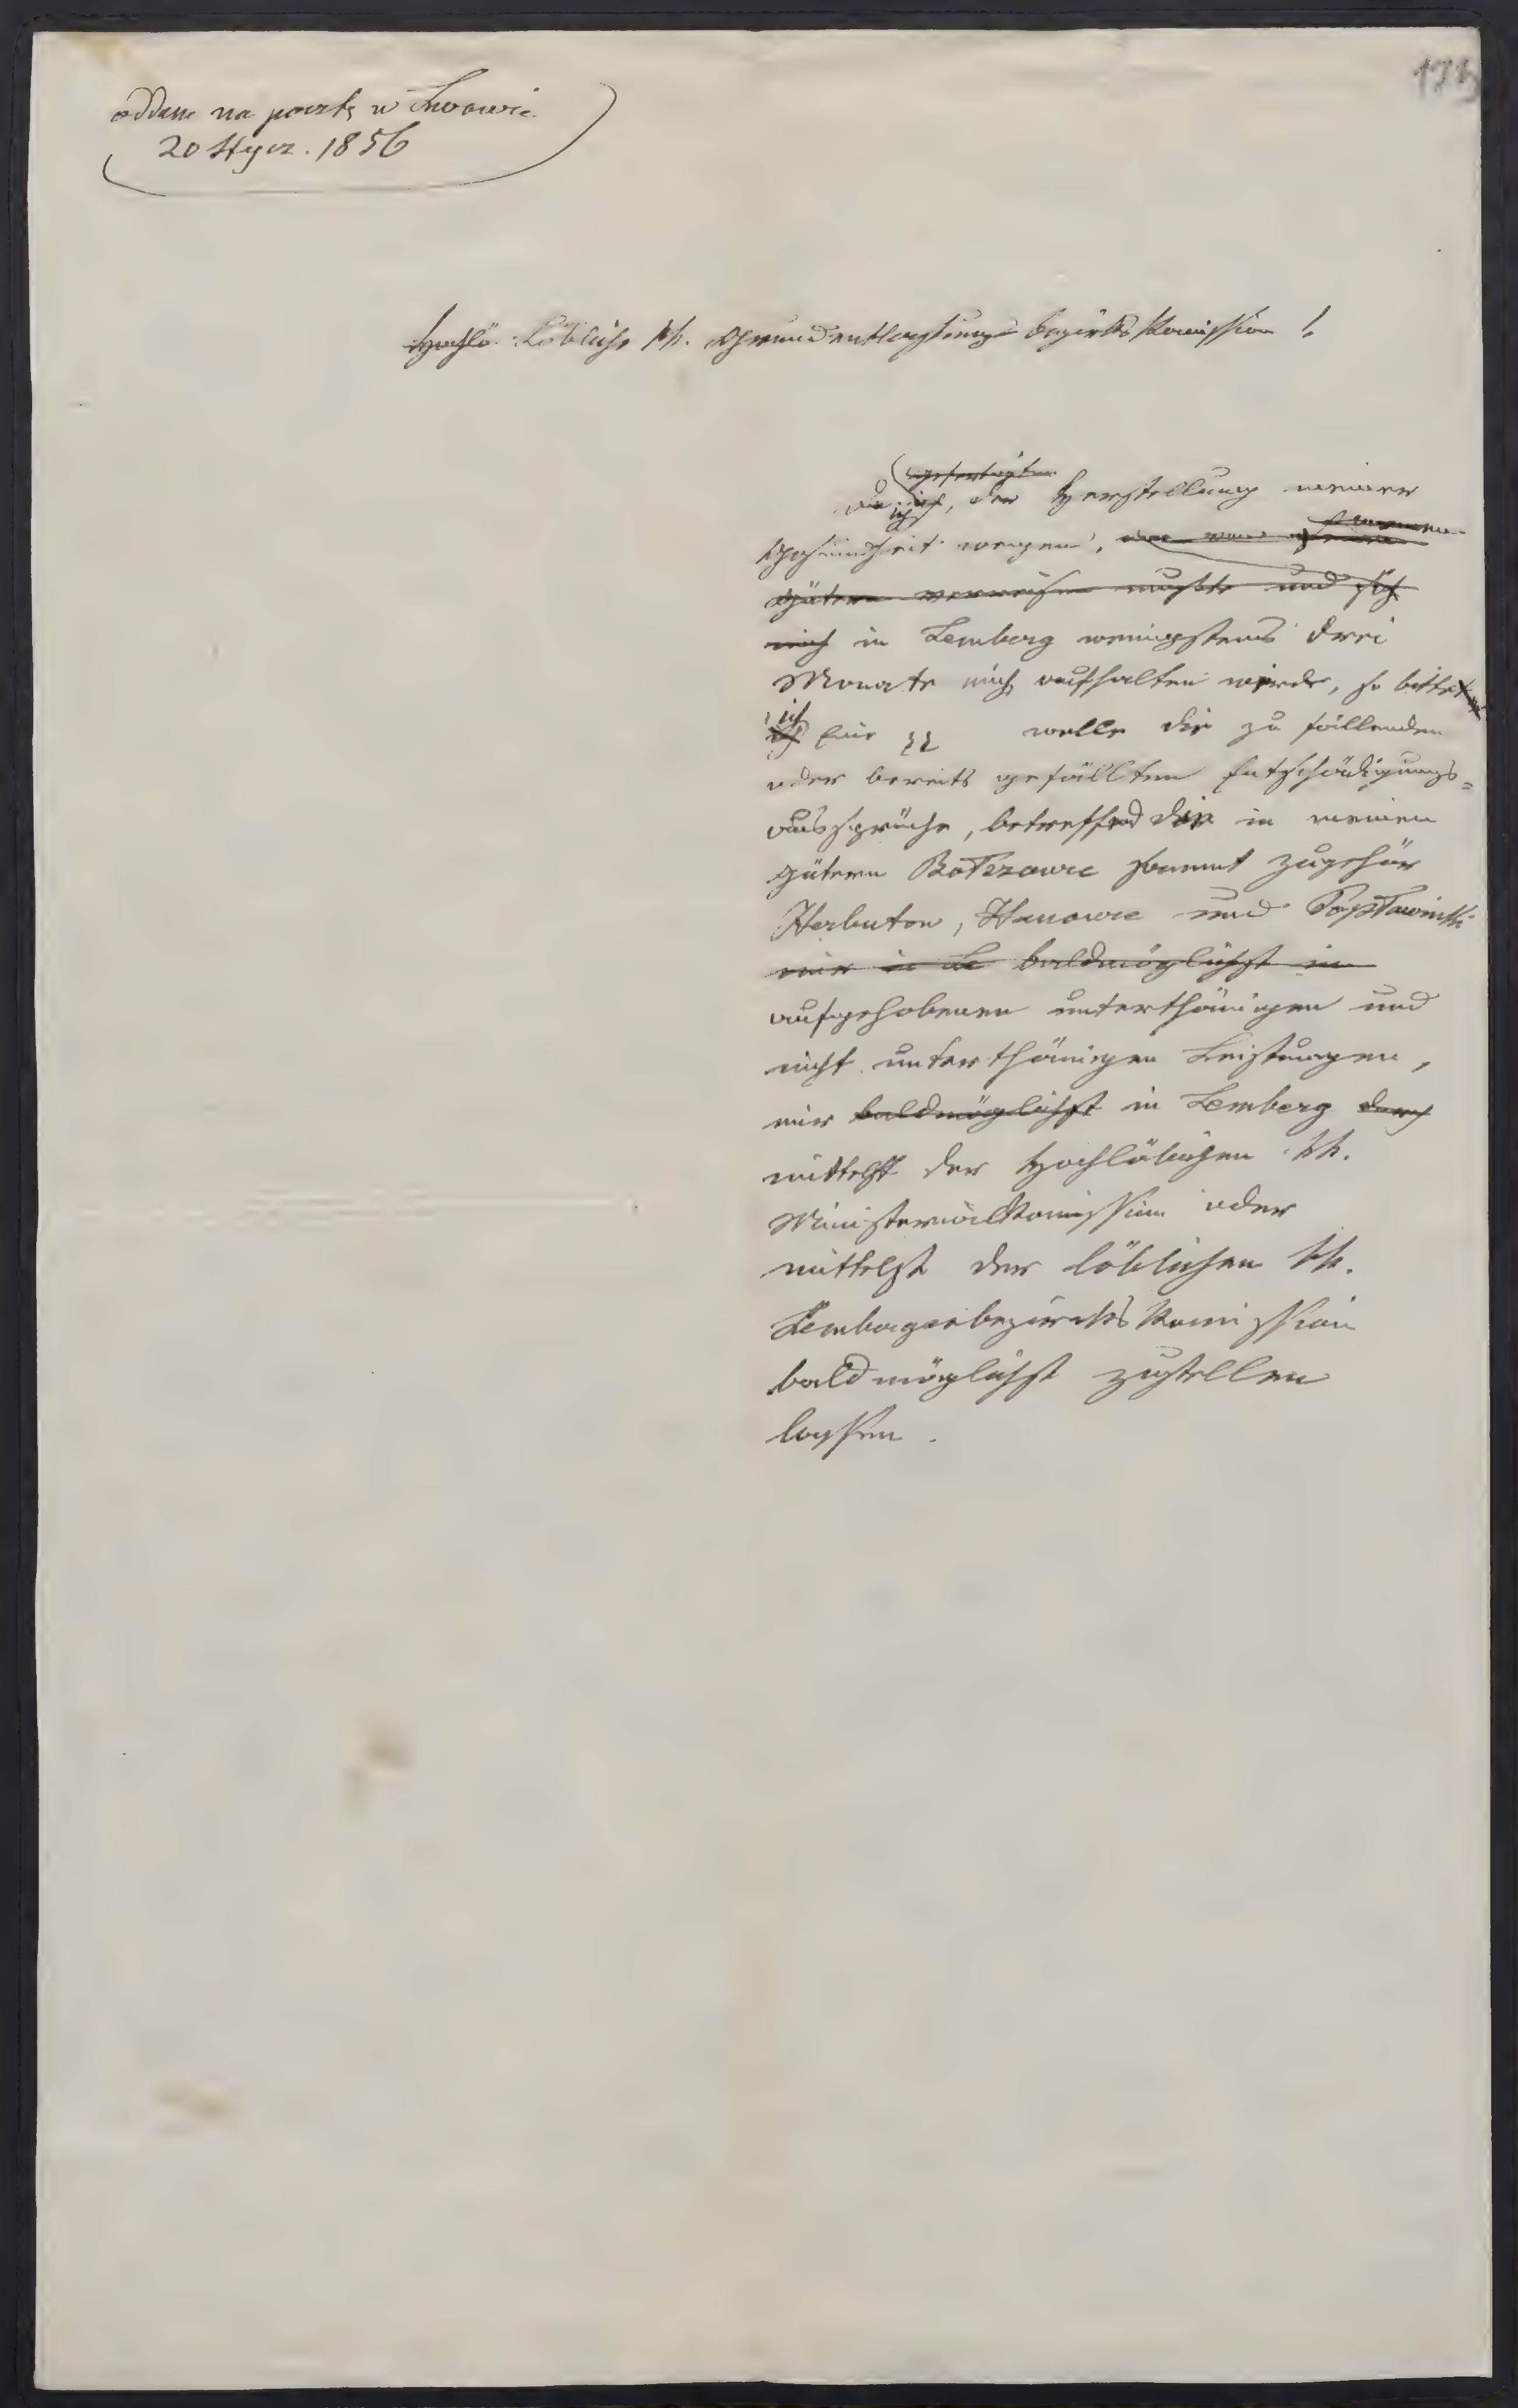 173
oddane na pocztę w Lwowie
20 Stycz. 1856
Hochlö. Löbliche kk. Grundentlastungs Bezirks Komission!
gefertigter
Da ich, der Herstellung meiner
Gesundheit wegen,
Gütern verreisen mußte und sich
mich in Lemberg wenigstens drei
Monate mich aufhalten werde, so bitte
ich Eine wolle die zu fällenden
oder bereits gefällten Entschädigungs=
aussprüche, betreffend die in meinen
Gütern Bołszowce sammt Zugehör
Herbutow, Hanowce und Popławniki
mir in Le baldmöglichst in
aufgehobenen unterthänigen und
nicht unterthänigen Leistungen,
mir baldmöglichst in Lemberg durch
mittelst der Hochlöblichen kk.
Ministerialkomission oder
mittelst der löblichen kk.
Lembergerbezirks Komission
baldmöglichst zustellen
lassen.